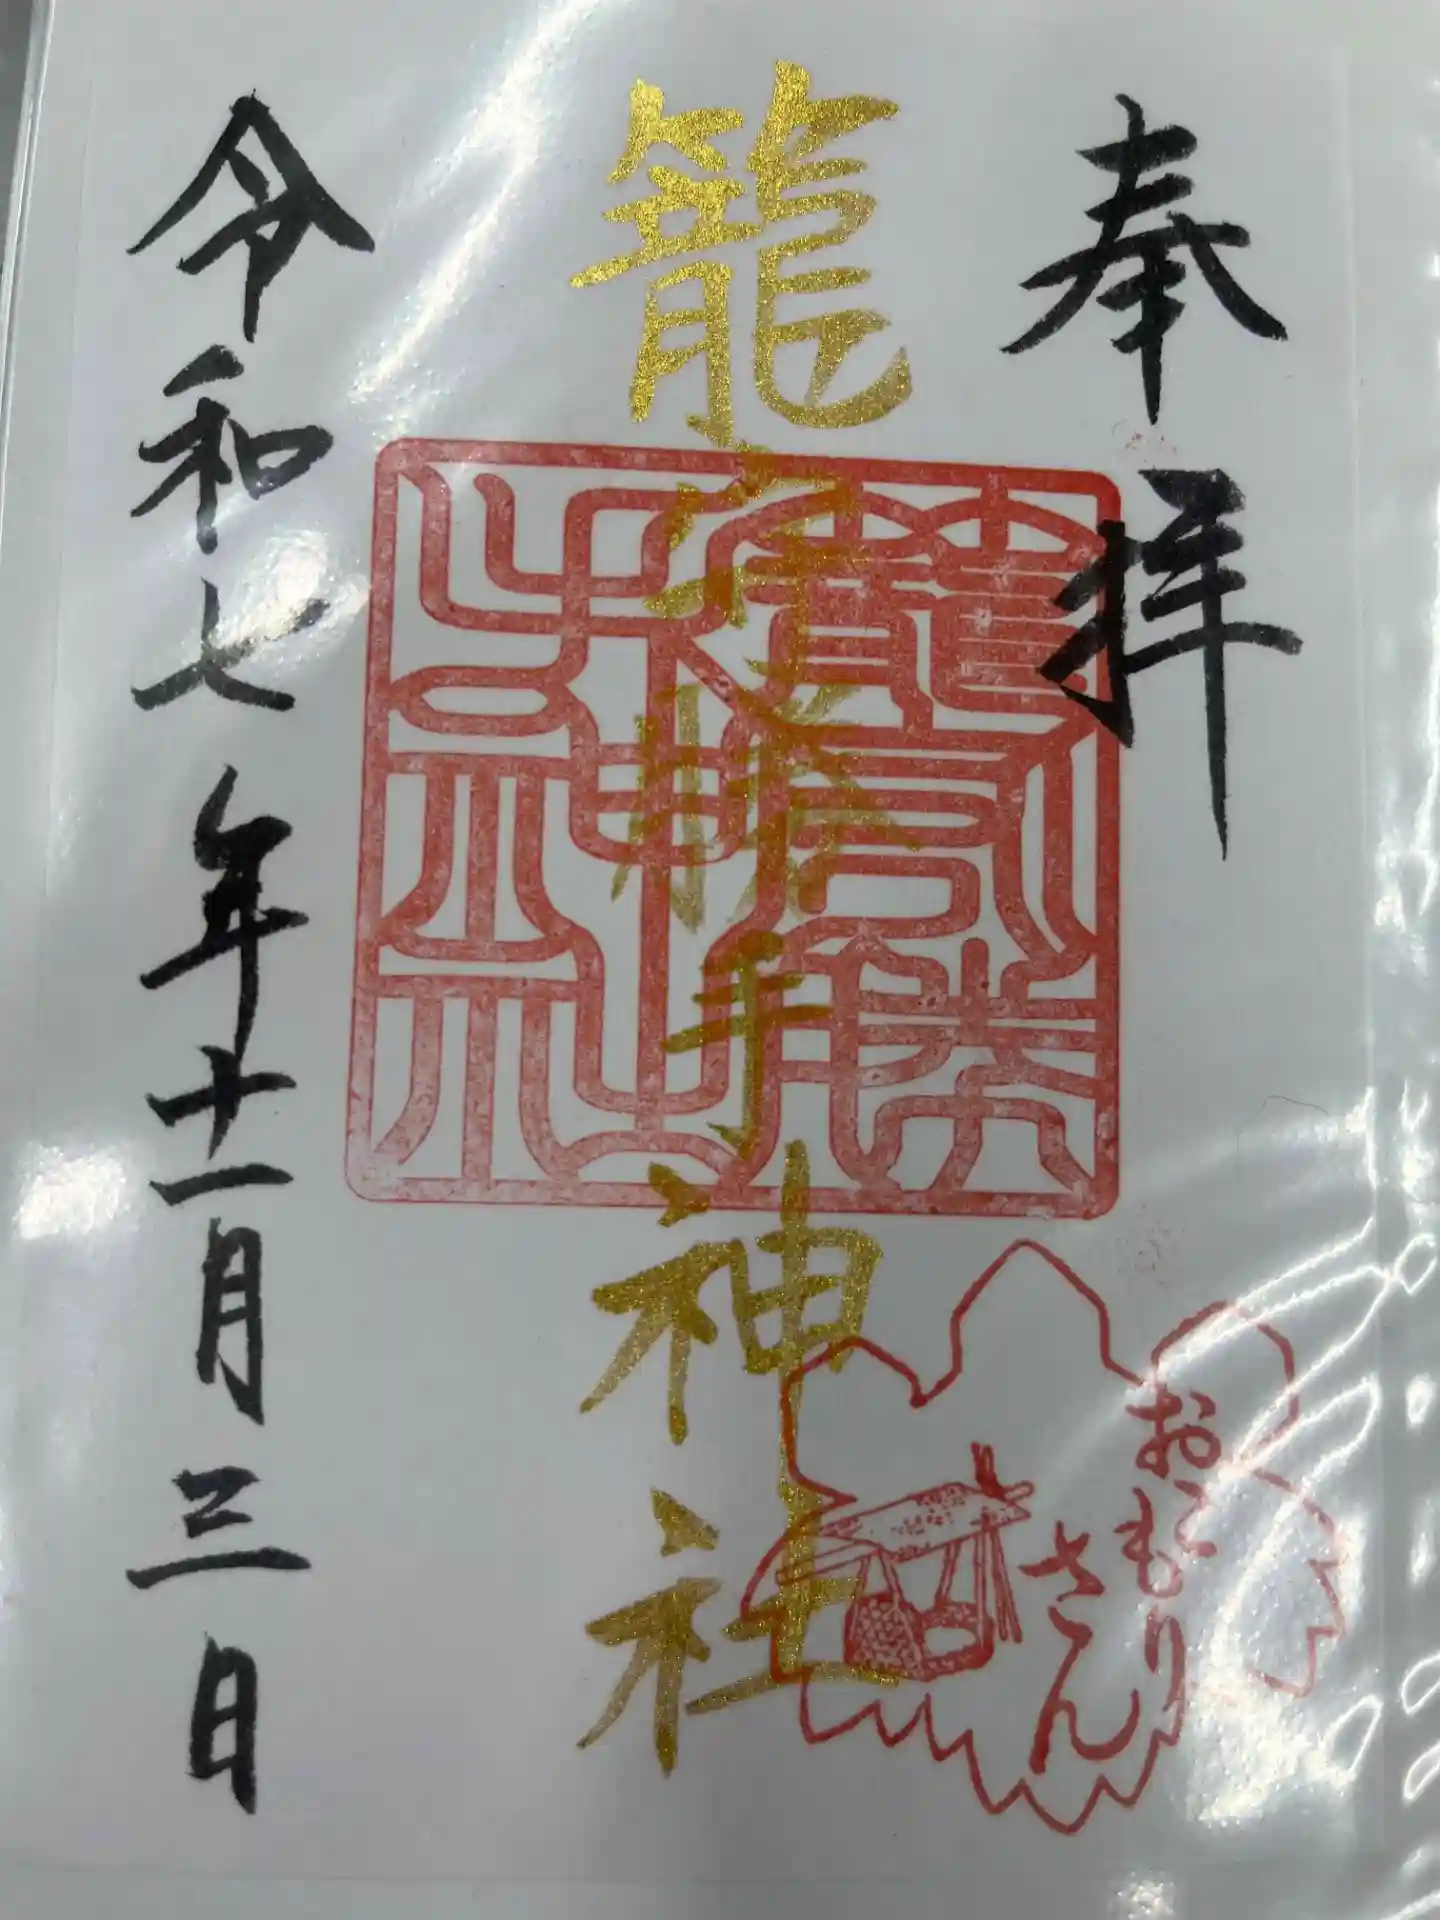 奉拝
籠守勝手神社
おこもり
さん
令和七年十一月三日